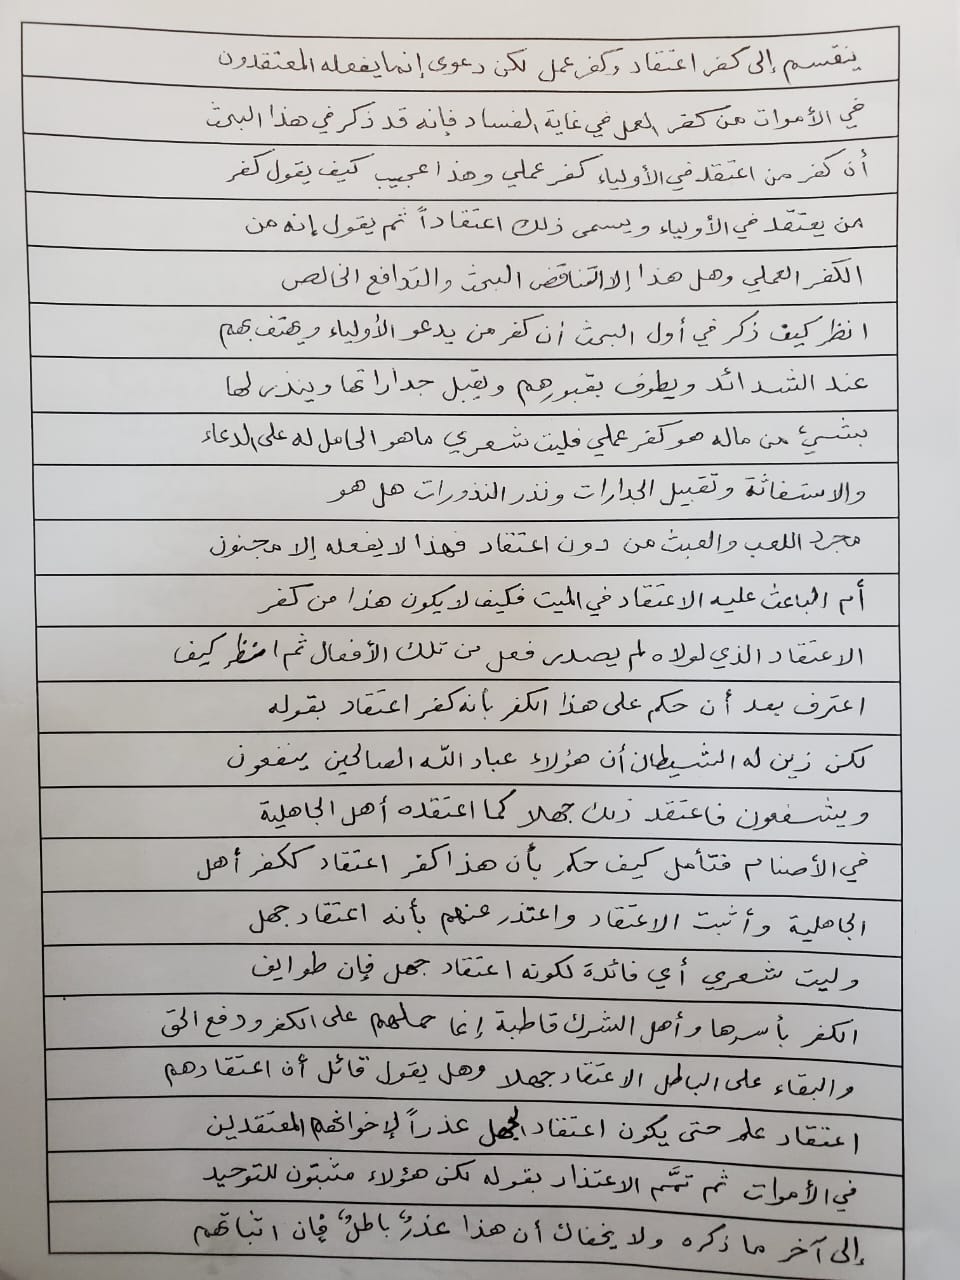 ينقسم إلى كفر اعتقاد وكفر عمل لكن دعوى إنما يفعله المعتقدون
في الأموات من كفر العمل في غاية الفساد فإنه قد ذكر في هذا البحث
أن كفر من اعتقد في الأولياء كفر عملي وهذا عجيب كيف يقول كفر
من يعتقد في الأولياء ويسمى ذلك اعتقاداً ثم يقول إنه من
الكفر العملي وهل هذا إلا التناقض البحث والتدافع الخالص
انظر كيف ذكر في أول البحث أن كفر من يدعو الأولياء ويهتف بهم
عند الشدائد ويطوف بقبورهم ويقبل جداراتها وينذر لها
بشيء من ماله هو كفر عملي فليت شعري ماهو الحامل له على الدعاء
والاستغاثة وتقبيل الجدارات ونذر النذورات هل هو
مجرد اللعب والعبث من دون اعتقاد فهذا لا يفعله إلا مجنون
أم الباعث عليه الاعتقاد في الميت فكيف لا يكون هذا من كفر
الاعتقاد الذي لولاه لم يصدر فعل من تلك الأفعال ثم انظر كيف
اعترف بعد أن حكم على هذا الكفر بأنه كفر اعتقاد بقوله
لكن زين له الشيطان أن هؤلاء عباد الله الصالحين ينفعون
ويشفعون فاعتقد ذلك جهلا كما اعتقده أهل الجاهلية
في الأصنام فتأمل كيف حكم بأن هذا كفر اعتقاد ككفر أهل
الجاهلية وأثبت الاعتقاد واعتذر عنهم بأنه اعتقاد جهل
وليت شعري أي فائدة لكونه اعتقاد جهل فإن طوايف
الكفر بأسرها وأهل الشرك قاطبة إنما حملهم على الكفر ودفع الحق
والبقاء على الباطل الاعتقاد جهلا وهل يقول قائل أن اعتقادهم
اعتقاد علم حتى يكون اعتقاد الجهل عذراً لإخوانهم المعتقدين
في الأموات ثم تمَّم الاعتذار بقوله لكن هؤلاء مثبتون للتوحيد
إلى آخر ما ذكره ولا يخفاك أن هذا عذرٌ باطلٌ فإن اثباتهم